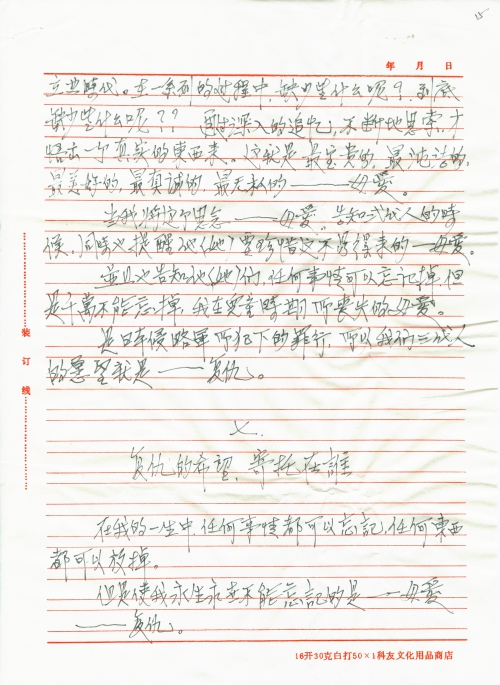 15
年 月 日
立業時代。在一系列的过程中,缺少些什么呢?到底
缺少些什么呢?? 通过深入的追忆,不断地思索,才
悟出一个真实的東西来。这就是最宝贵的,最纯洁的,
最美好的,最真诚的,最无私的——母爱。
当我将这个思念——母爱。告知三代人的時
候,同時也提醒他(她)要珍惜这不易得来的一母爱。
並且也告知他(她)们,任何事情可以忘记掉,但
是千萬不能忘掉,我在児童時期,所丧失的母爱。
是日本侵略軍所犯下的罪行,所以我们三代人
的愿望就是——复仇。
七.
复仇的希望,寄托在誰
在我的一生中,任何事情都可以忘記,任何東西
都可以放掉。
但是使我永生永世不能忘記的是——母爱
——复仇。
装订线
16开30克白打50×1科友文化用品商店